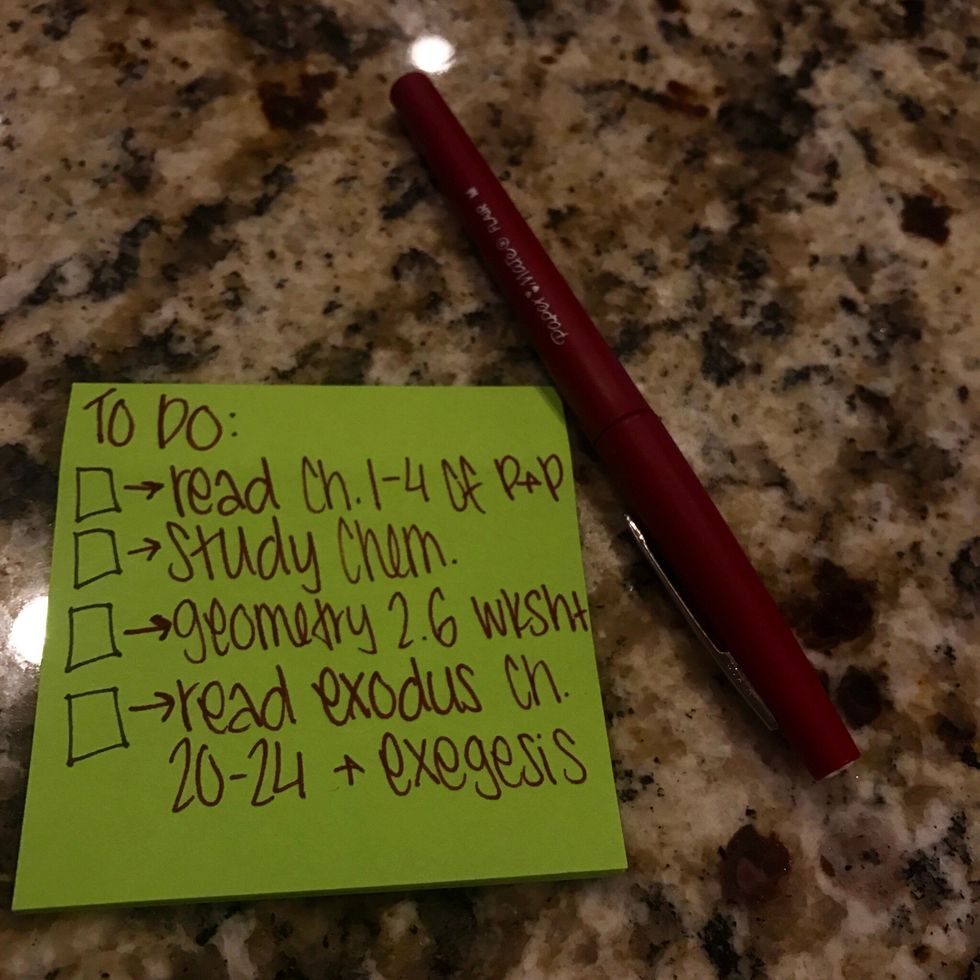 Paper Mate® FLAIR M
TO DO:
→read Ch. 1-4 of P+P
→study Chem.
→geometry 2.6 wksht
→read exodus Ch.
20-24 + exegesis